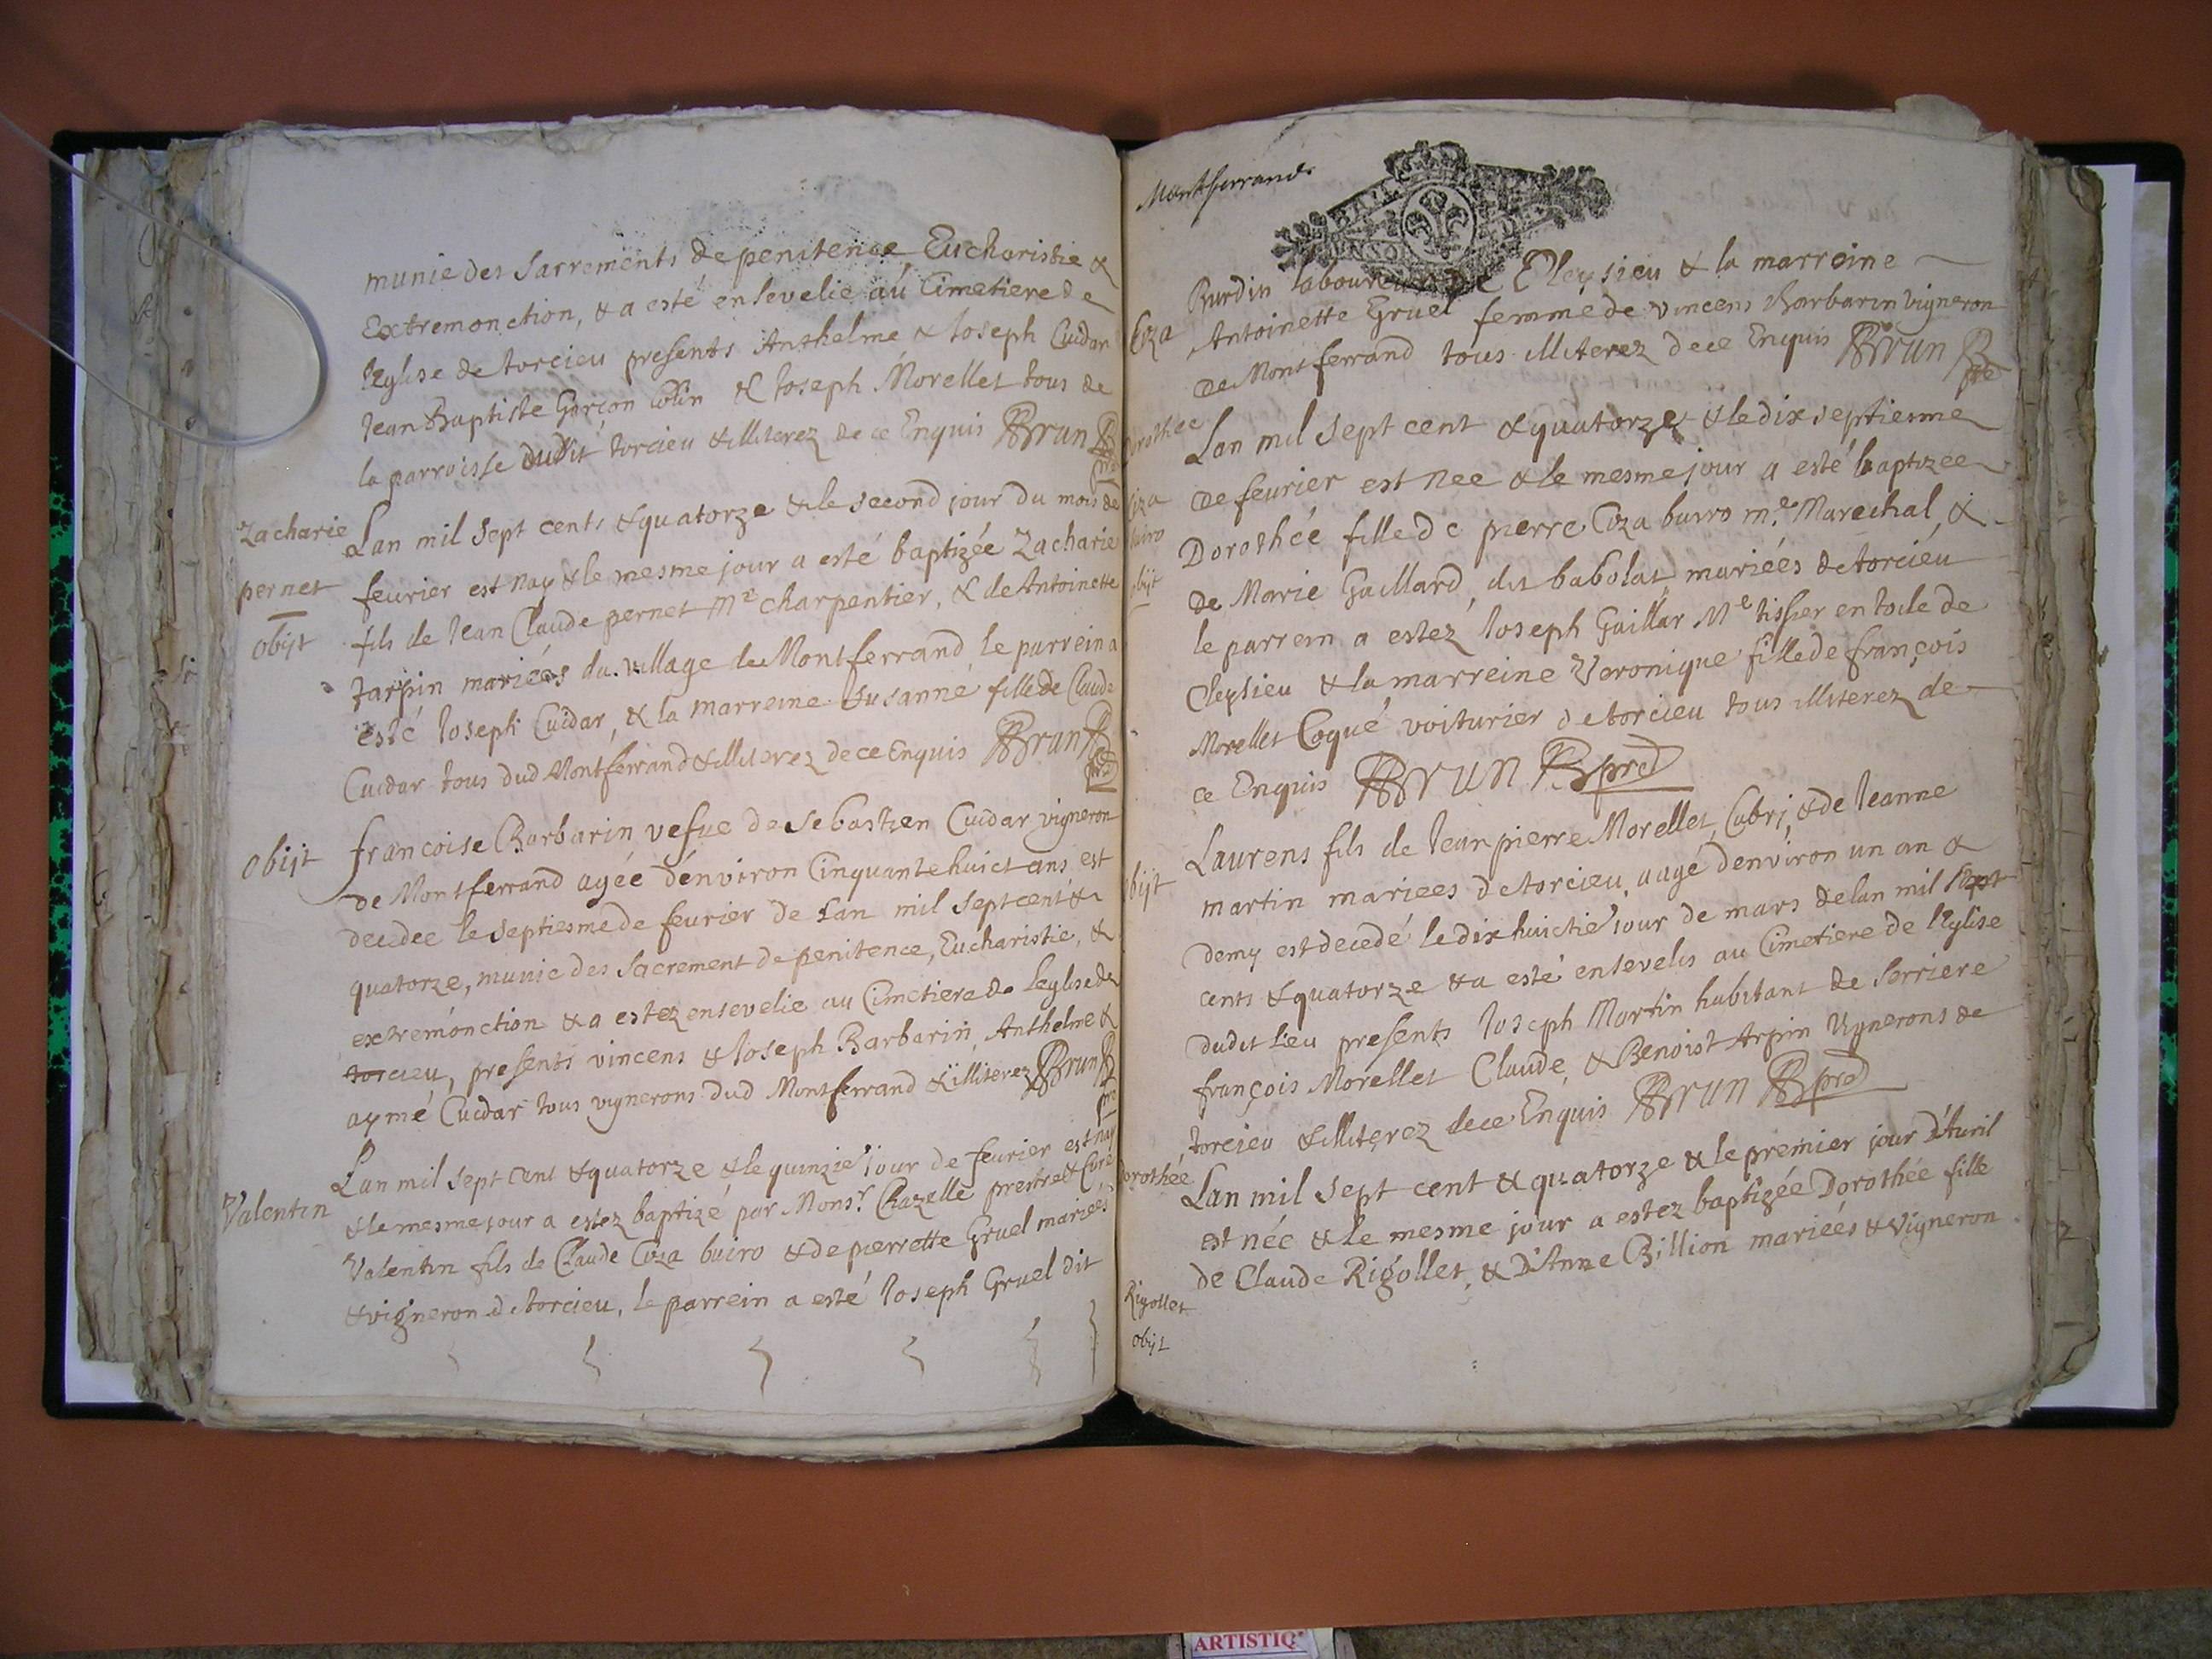 munie des Sacrements de penitence Eucharistie &
Extremonction, & a esté ensevelie au Cimetiere de
l'Eglise de torcieu presents Anthelme & Joseph Cuidar
Jean Baptiste Garçon & Joseph Morellet tous de
la parroisse dudit torcieu & illiterez de ce Enquis Brun
Zacharie
pernet
obijt
Lan mil sept cents & quatorze & le second jour du mois de
feurier est nay & le mesme jour a esté baptizée Zacharie
fils de Jean Claude pernet Me charpentier, & de Antoinette
tarpin mariées du village de Montferrand le parrein a
esté Joseph Cuidar, & la marreine Susanne fille de Claude
Cuidar tous dud Montferrand & illiterez de ce Enquis Brun
obijt
francoise Barbarin vefue de Sebastien Cuidar vigneron
de Montferrand agée d'énviron Cinquante huict ans est
decedee le Septiesme de feurier de Lan mil Sept cent &
quatorze, munie des Sacrement de penitence, Eucharistie, &
extremonction & a estez ensevelie au Cimetiere de Leglise de
torcieu, presents vincens & Joseph Barbarin Anthelme &
aymé Cuidar tous vignerons dud Montferrand & illiterez Brun
Valentin
Lan mil sept cent & quatorze & le quinzie jour de feurier est nay
& le mesme jour a estez baptizé par Monsr Chazelle prestre & Curé
Valentin fils de Claude Coza buiro & de pierrette Gruel mariées
& vigneron de torcieu, le parrein a esté Joseph Gruel dit
Montferrand
Burdin laboureur de Cleysieu & la marreine
Antoinette Gruel femme de vincens Barbarin vigneron
de Montferrand tous illiterez de ce Enquis Brun pre
Coza
Dorothee
Coza
buiro
obijt
Lan mil sept cent & quatorze & le dix septiesme
de feurier est nee & le mesme jour a esté baptizee
Dorothée fille de pierre Coza burro me Marechal, &
de Marie Gaillard, dit babolat, mariées de torcieu
le parrein a estez Joseph Gaillar Me tissier en toile de
Cleysieu & la marreine Veronique fille de françois
Morellet Coqué voiturier de torcieu tous illiterez de
ce Enquis Brun pre
obijt
Laurens fils de Jean pierre Morellet, Cabri, & de Jeanne
martin mariees de torcieu, aagé d'environ un an &
demy est decedé le dix huictie jour de mars de lan mil sept
cents & quatorze & a esté ensevelis au Cimetiere de l'Eglise
dudit Lieu presents Joseph Martin habitant de Serriere
françois Morellet Claude, & Benoist Arpin vignerons de
torcieu & illiterez de ce Enquis Brun pre
Dorothée
Rigollet
obijt
Lan mil sept cent & quatorze & le premier jour d'Auril
est née & le mesme jour a estez baptizée Dorothée fille
de Claude Rigollet, & D'Anne Billion mariées & vigneron
ARTISTIQ